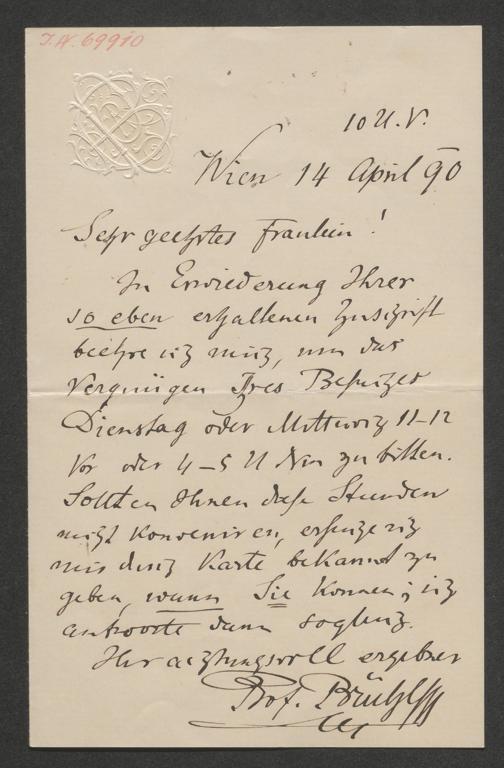 I.N. 69910
10 U. V.
Wien 14 April 90
Sehr geehrtes Fräulein!
In Erwiederung Ihrer
so eben erhaltenen Zuschrift
beehre ich mich, um das
Vergnügen Ihres Besuches
Dienstag oder Mittwoch 11–12
Vor oder 4–5 U Nm zu bitten.
Sollten Ihnen diese Stunden
nicht konveniren, ersuche ich
mir durch Karte bekannt zu
geben, wann Sie kommen; ich
antworte dann sogleich.
Ihr achtungsvoll ergebner
Prof. Brühl